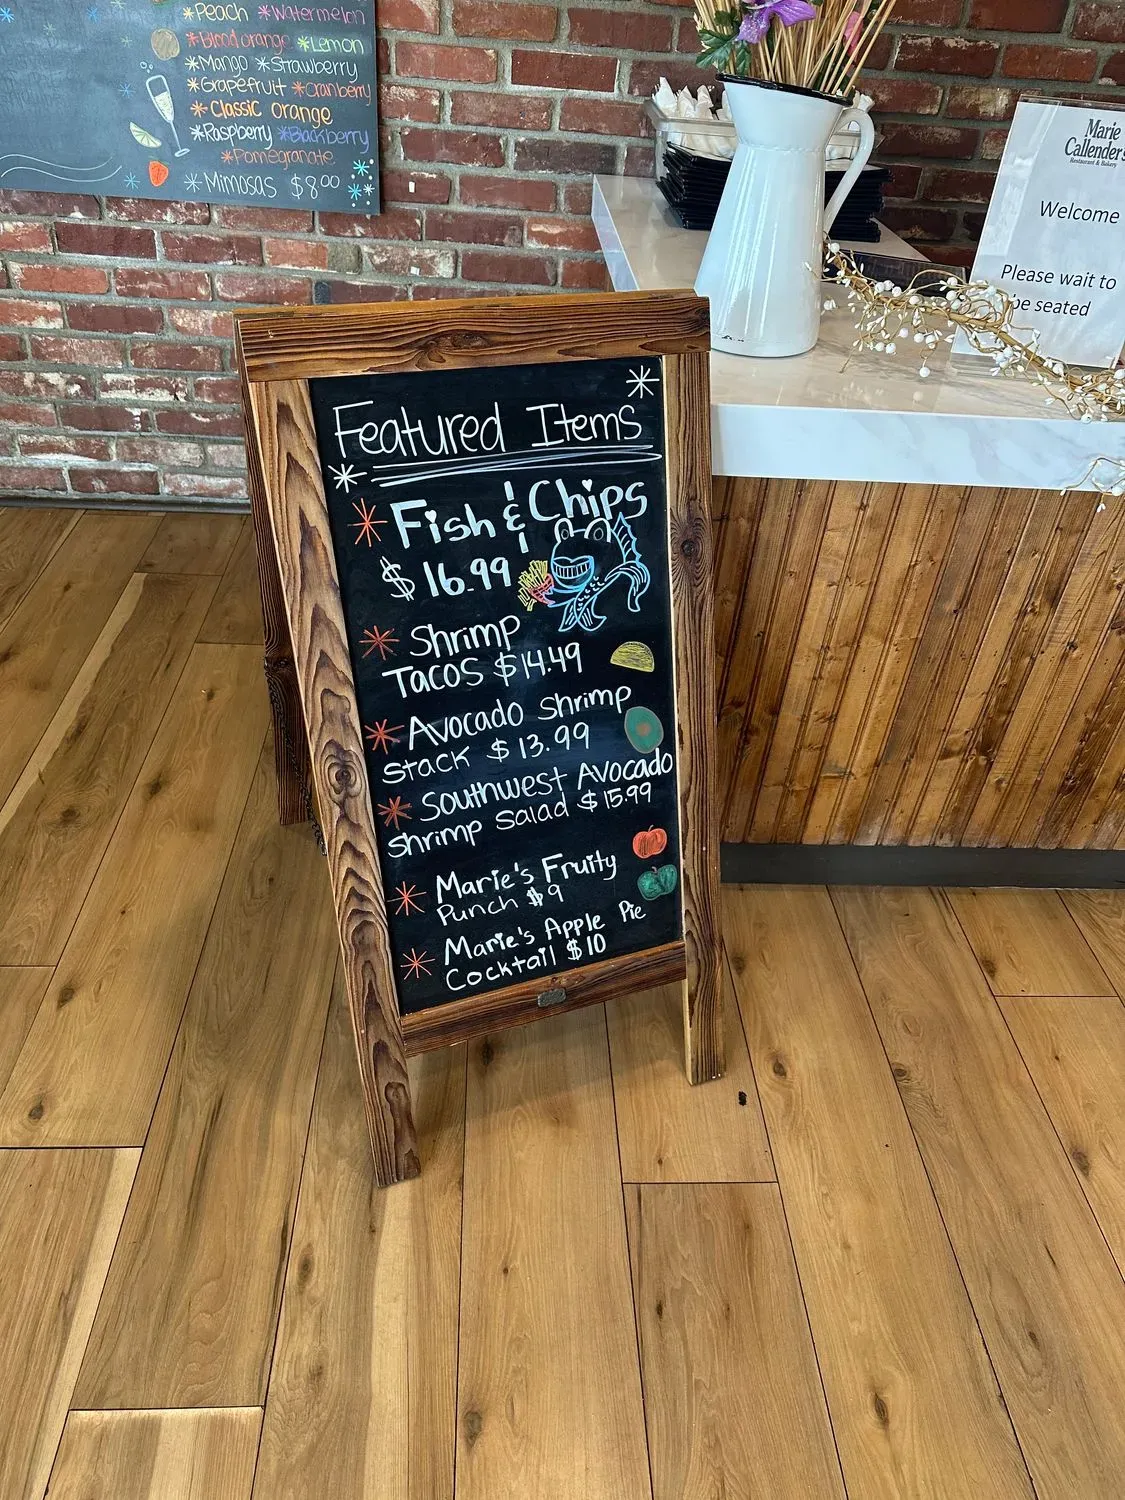 *Peach *Watermelon
*Blood orange *Lemon
*Mango *Strawberry
*Grapefruit *Cranberry
*Classic Orange
*Raspberry *Blackberry
*Pomegranate
*Mimosas $8.00
Marie
Callender's
Restaurant & Bakery
Welcome
Please wait to
be seated
Featured Items
* Fish & Chips
$16.99
* Shrimp
Tacos $14.49
* Avocado Shrimp
Stack $13.99
* Southwest Avocado
Shrimp Salad $15.99
* Marie's Fruity
Punch $9
* Marie's Apple Pie
Cocktail $10